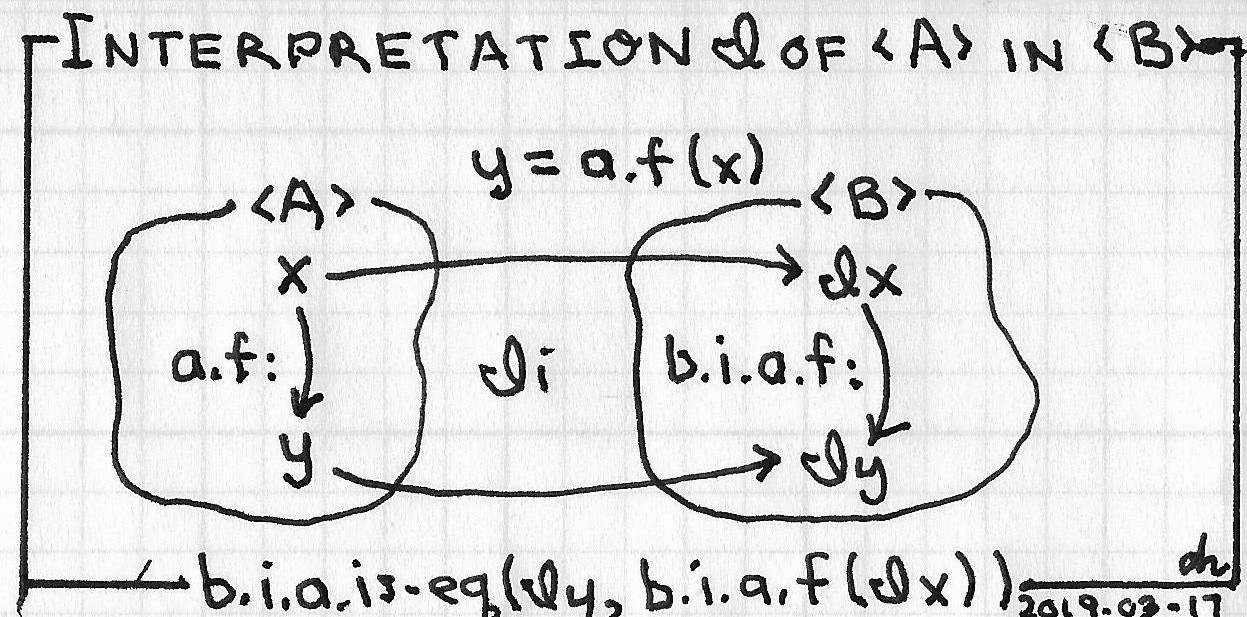 INTERPRETATION ℐ OF <A> IN <B>
y = a.f(x)
<A> <B>
x ℐx
a.f: ℐi b.i.a.f:
y ℐy
b.i.a.is-eq(ℐy, b.i.a.f(ℐx))
dh
2019-03-17